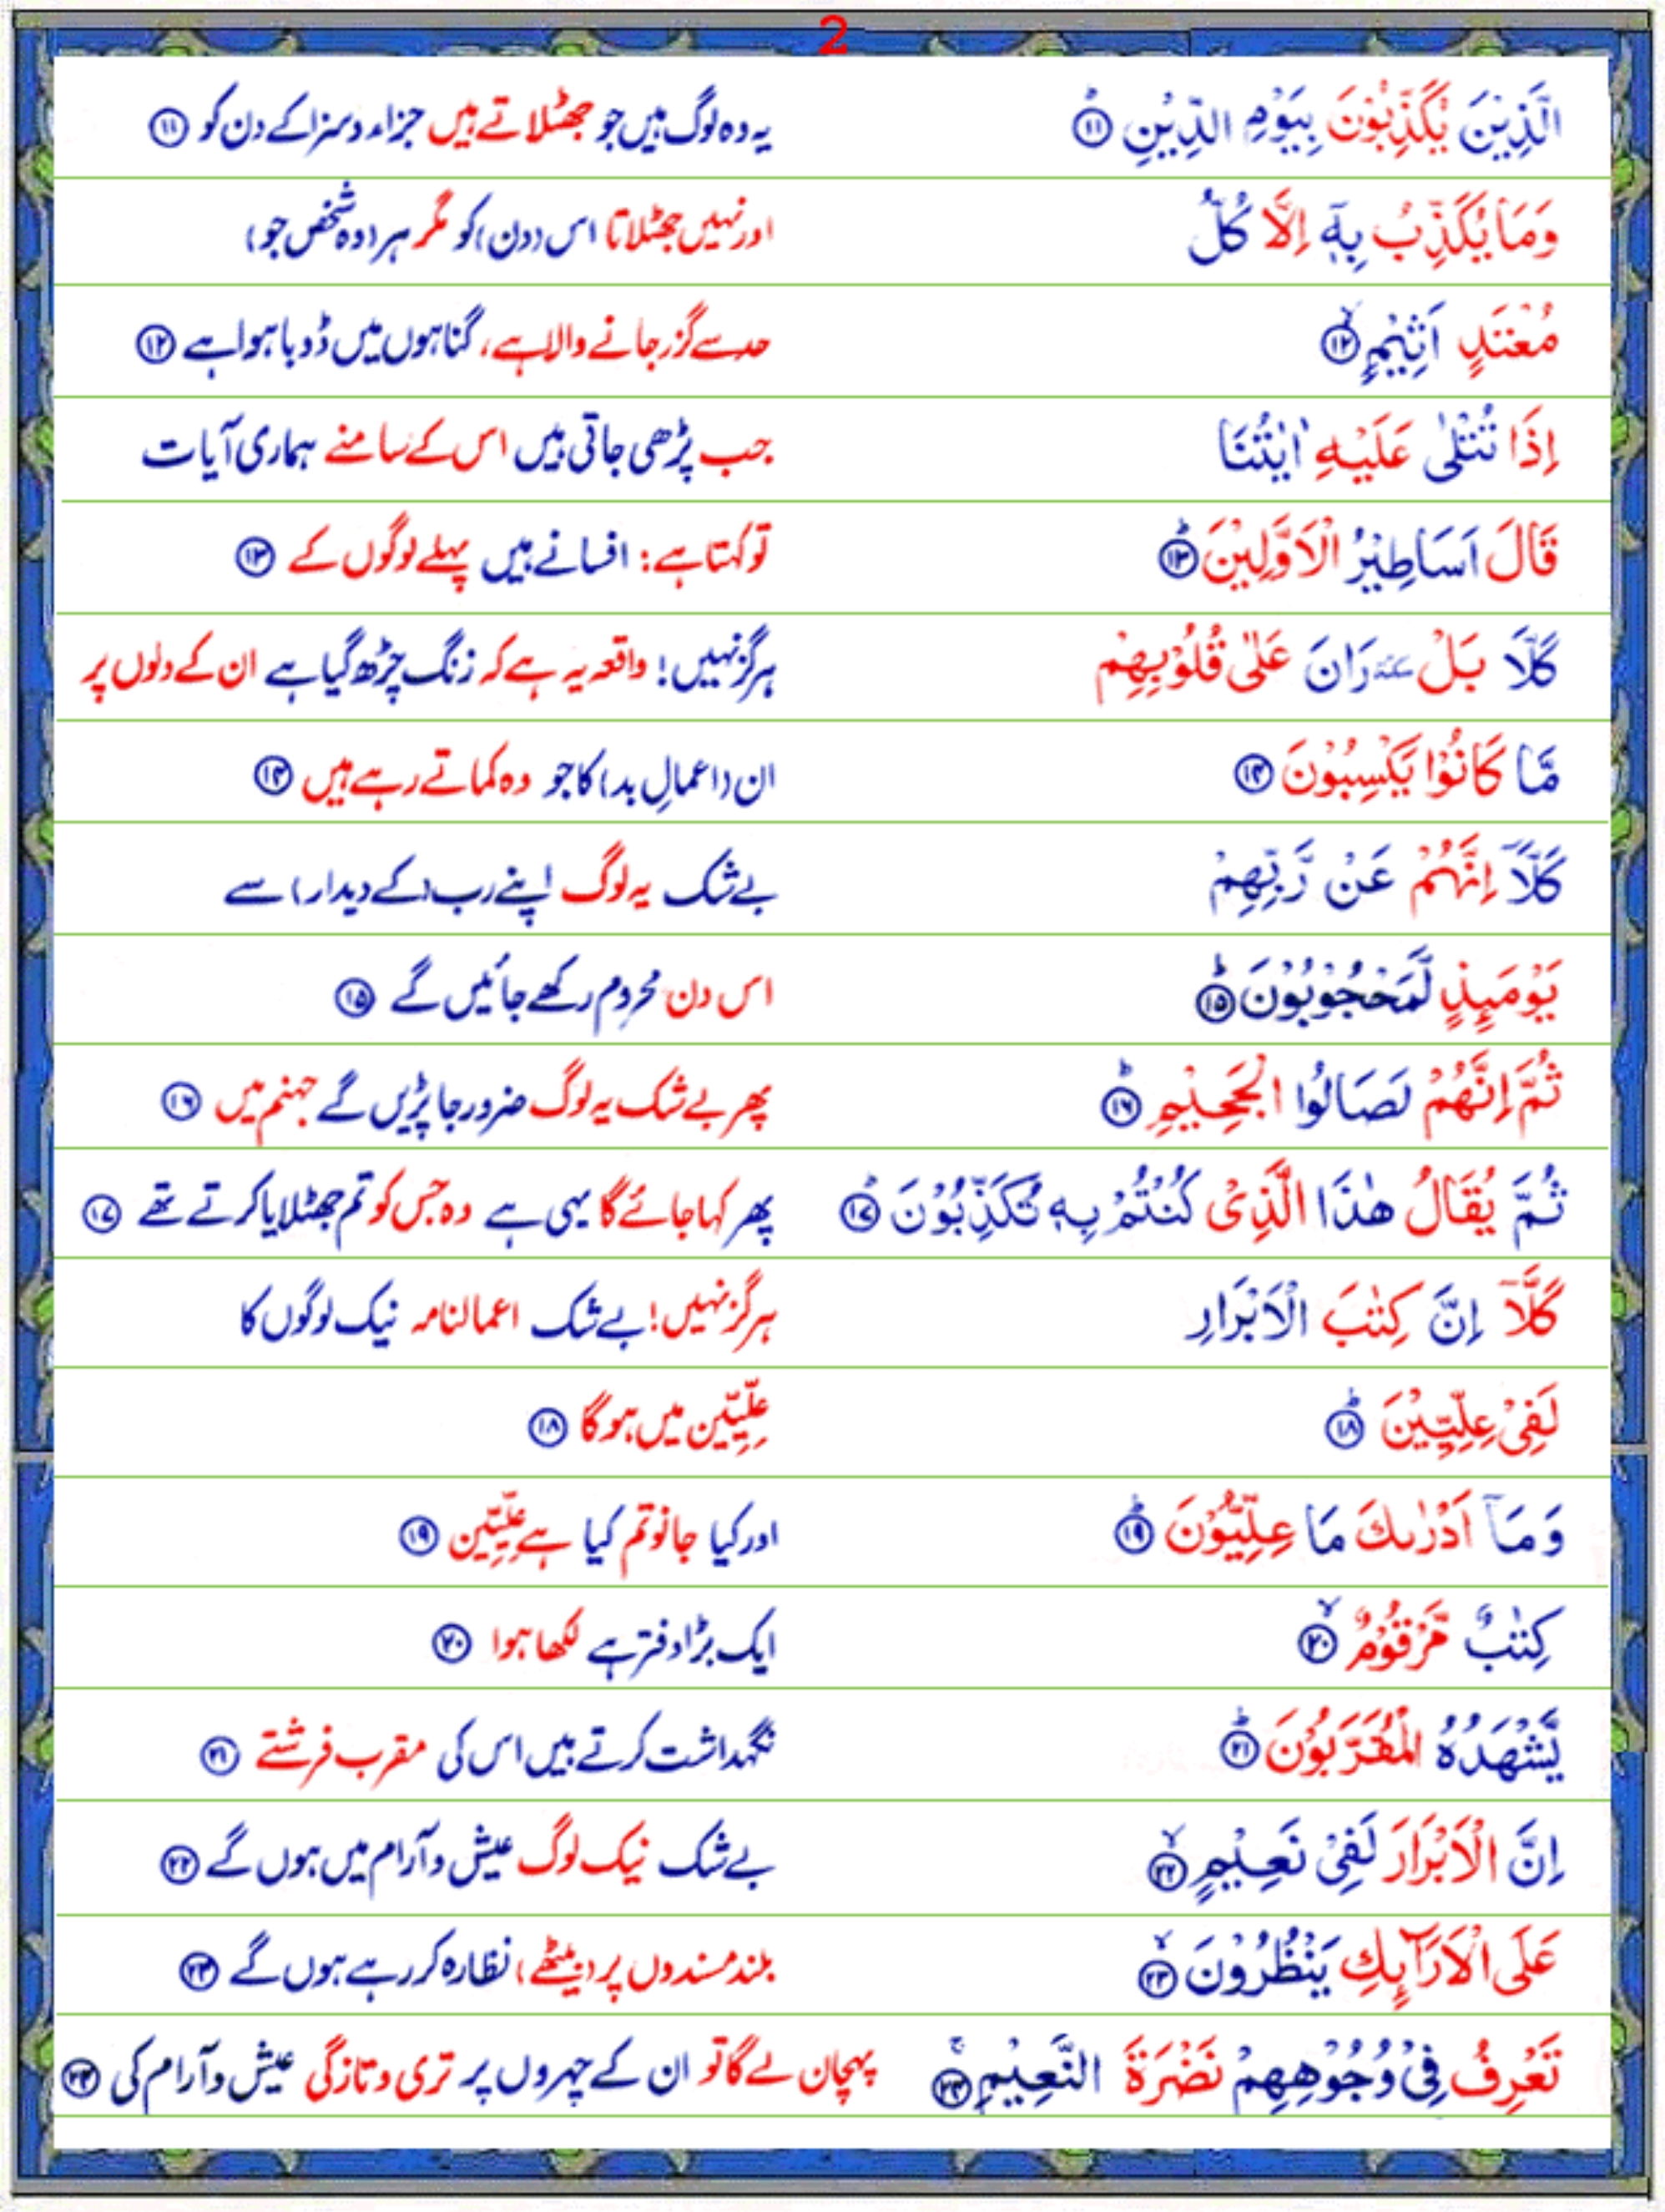 2
الَّذِيْنَ يُكَذِّبُوْنَ بِيَوْمِ الدِّيْنِ ۱۱ یہ وہ لوگ ہیں جو جھٹلاتے ہیں جزاء وسزا کے دن کو ۱۱
وَمَا يُكَذِّبُ بِهٖۤ اِلَّا كُلُّ اور نہیں جھٹلاتا اس (دن) کو مگر ہر (وہ شخص جو)
مُعْتَدٍ اَثِيْمٍ ۱۲ حد سے گزر جانے والا ہے، گناہوں میں ڈوبا ہوا ہے ۱۲
اِذَا تُتْلٰى عَلَيْهِ اٰيٰتُنَا جب پڑھی جاتی ہیں اس کے سامنے ہماری آیات
قَالَ اَسَاطِيْرُ الْاَوَّلِيْنَ ۱۳ تو کہتا ہے: افسانے ہیں پہلے لوگوں کے ۱۳
كَلَّا بَلْ ٚ رَانَ عَلٰى قُلُوْبِهِمْ ہرگز نہیں! واقعہ یہ ہے کہ زنگ چڑھ گیا ہے ان کے دلوں پر
مَّا كَانُوْا يَكْسِبُوْنَ ۱۴ ان (اعمالِ بد) کا جو وہ کماتے رہے ہیں ۱۴
كَلَّاۤ اِنَّهُمْ عَنْ رَّبِّهِمْ بے شک یہ لوگ اپنے رب (کے دیدار) سے
يَوْمَىِٕذٍ لَّمَحْجُوْبُوْنَ ۱۵ اس دن محروم رکھے جائیں گے ۱۵
ثُمَّ اِنَّهُمْ لَصَالُوا الْجَحِيْمِ ۱۶ پھر بے شک یہ لوگ ضرور جا پڑیں گے جہنم میں ۱۶
ثُمَّ يُقَالُ هٰذَا الَّذِىْ كُنْتُمْ بِهٖ تُكَذِّبُوْنَ ۱۷ پھر کہا جائے گا یہی ہے وہ جس کو تم جھٹلایا کرتے تھے ۱۷
كَلَّاۤ اِنَّ كِتٰبَ الْاَبْرَارِ ہرگز نہیں! بے شک اعمالنامہ نیک لوگوں کا
لَفِىْ عِلِّيِّيْنَ ۱۸ عِلِّیِّین میں ہو گا ۱۸
وَمَاۤ اَدْرٰىكَ مَا عِلِّيُّوْنَ ۱۹ اور کیا جانو تم کیا ہے عِلِّیِّین ۱۹
كِتٰبٌ مَّرْقُوْمٌ ۲۰ ایک بڑا دفتر ہے لکھا ہوا ۲۰
يَّشْهَدُهُ الْمُقَرَّبُوْنَ ۲۱ نگہداشت کرتے ہیں اس کی مقرب فرشتے ۲۱
اِنَّ الْاَبْرَارَ لَفِىْ نَعِيْمٍ ۲۲ بے شک نیک لوگ عیش وآرام میں ہوں گے ۲۲
عَلَى الْاَرَآىِٕكِ يَنْظُرُوْنَ ۲۳ بلند مسندوں پر (بیٹھے) نظارہ کر رہے ہوں گے ۲۳
تَعْرِفُ فِىْ وُجُوْهِهِمْ نَضْرَةَ النَّعِيْمِ ۲۴ پہچان لے گا تو ان کے چہروں پر تری وتازگی عیش وآرام کی ۲۴